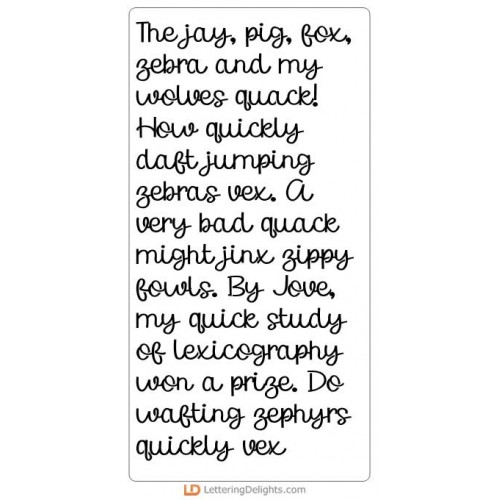 The jay, pig, fox,
zebra and my
wolves quack!
How quickly
daft jumping
zebras vex. A
very bad quack
might jinx zippy
fowls. By Jove,
my quick study
of lexicography
won a prize. Do
wafting zephyrs
quickly vex
LD LetteringDelights.com